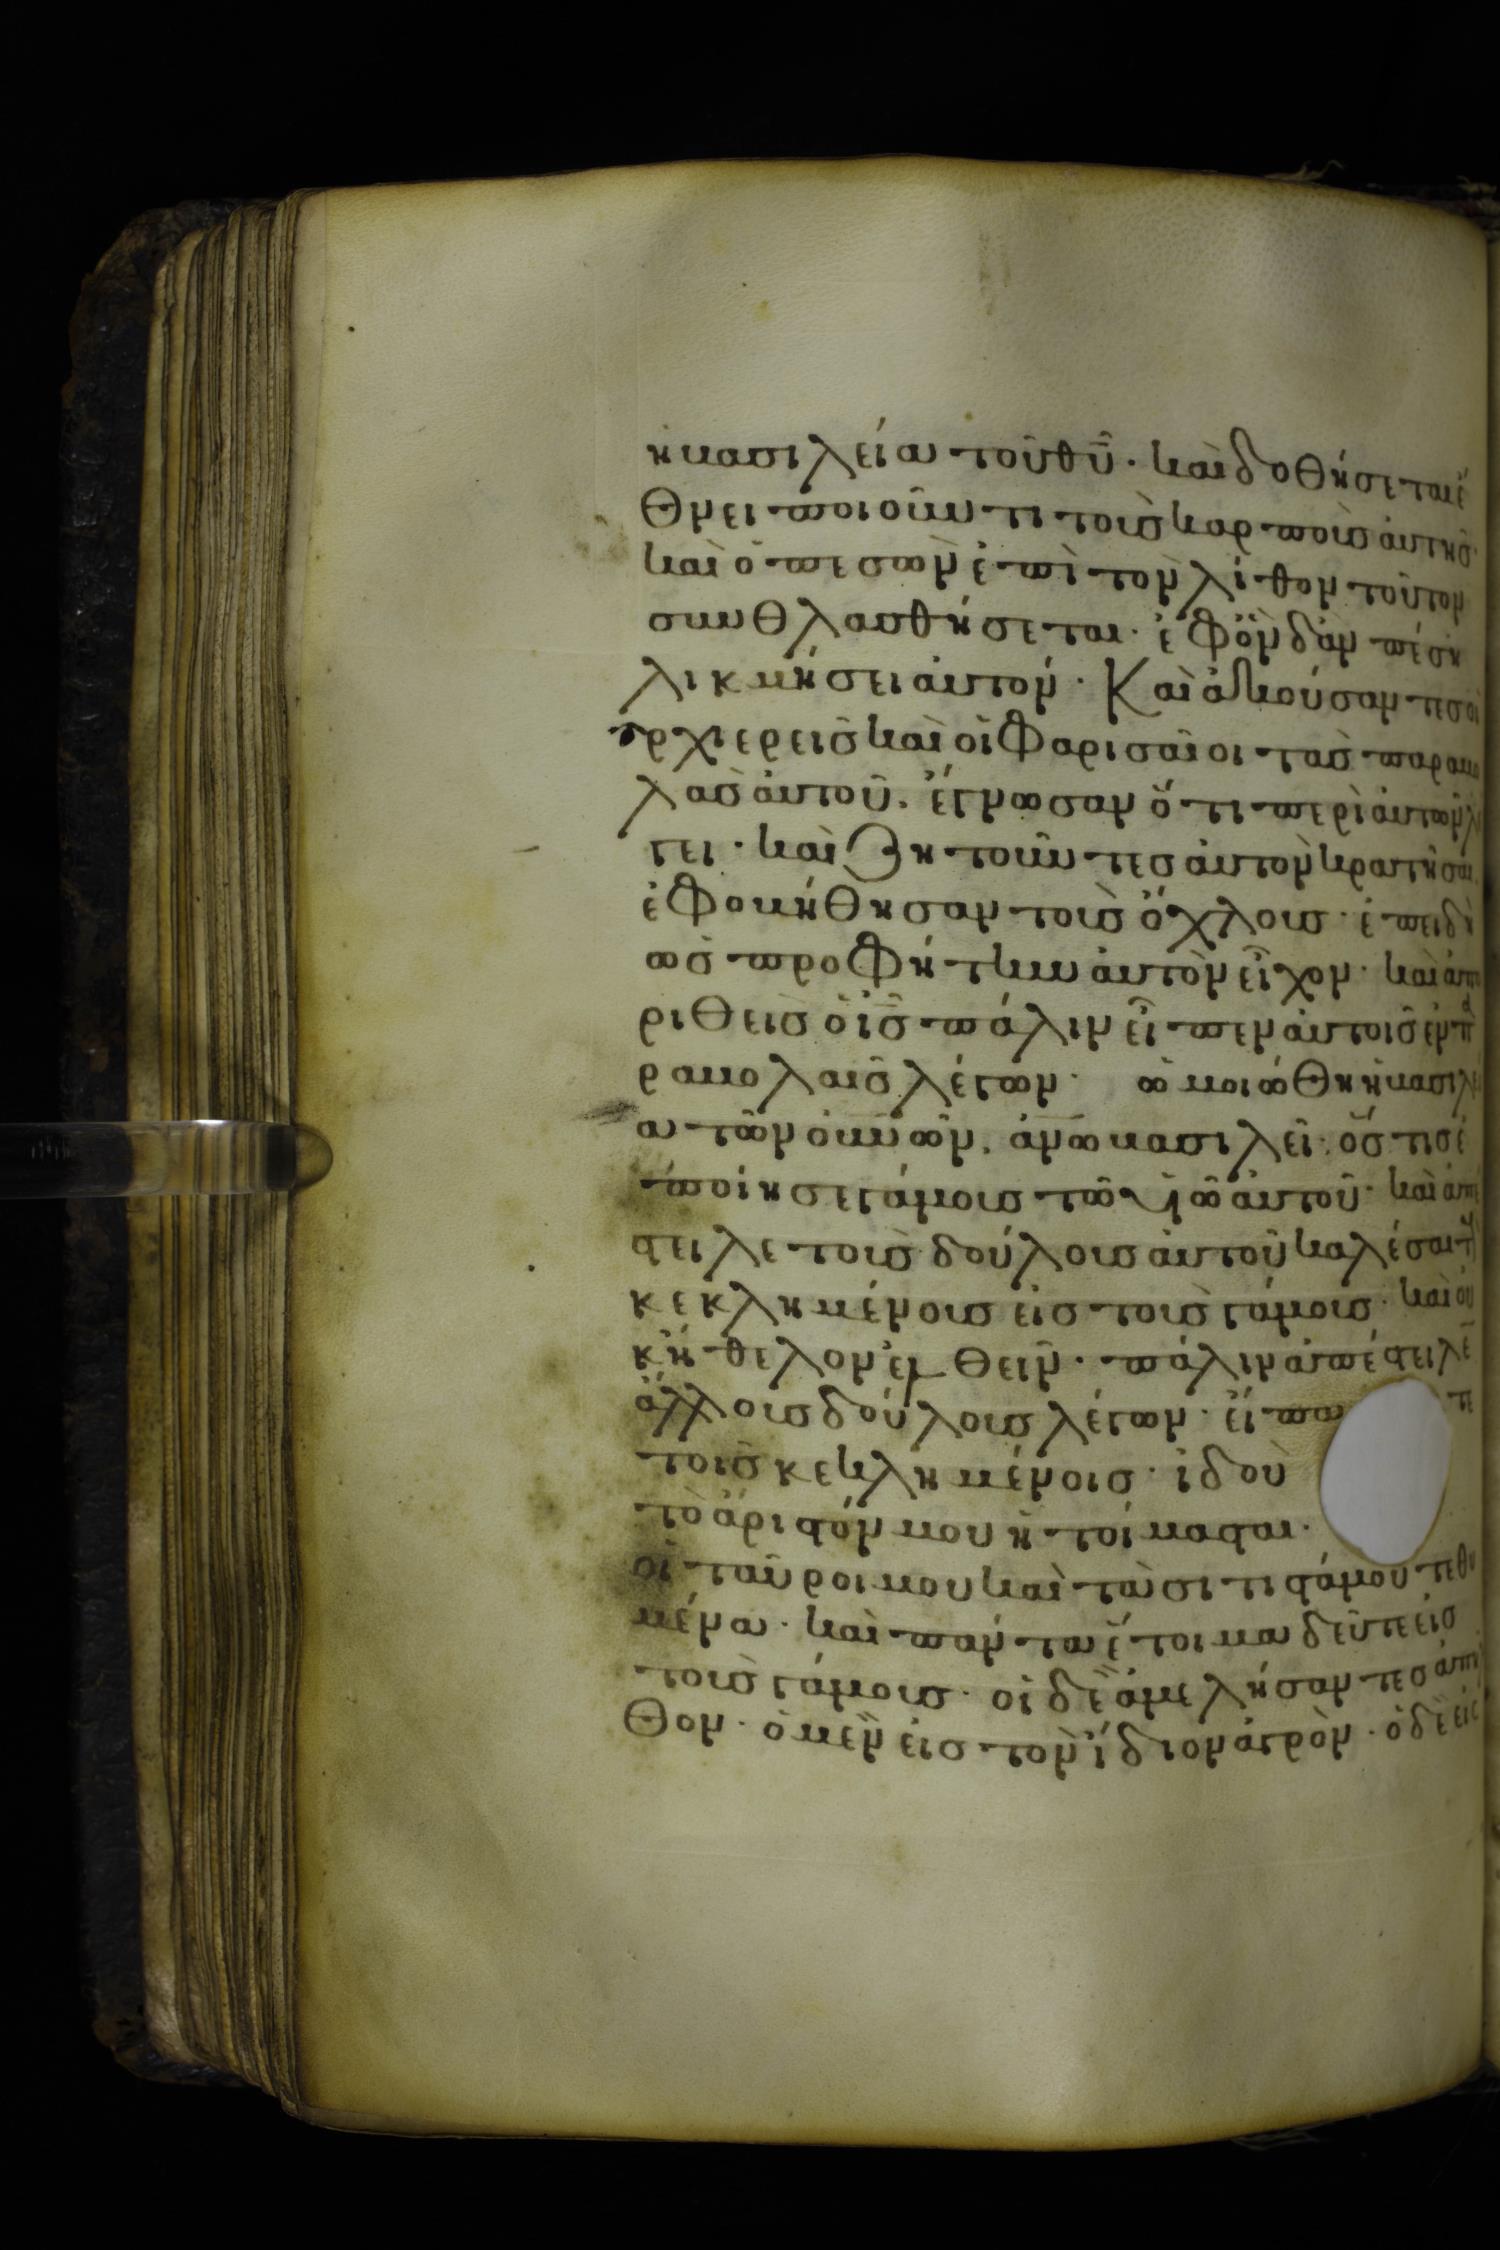 ἡ βασιλεία τοῦ θυ̅· καὶ δοθήσεται ἔ
θνει ποιοῦντι τοὺς καρποὺς αὐτῆς·
καὶ ὁ πεσὼν ἐπὶ τὸν λίθον τοῦτον
συνθλασθήσεται· ἐφ ὃν δὰν πέση
λικμήσει αὐτόν· Καὶ ἀκούσαντες οἱ
ἀρχιερεῖς καὶ οἱ φαρισαῖοι τὰς παραβο
λὰς αὐτοῦ, ἔγνωσαν ὅτι περὶ αὐτῶν λέ
γει· καὶ ζητοῦντες αὐτὸν κρατῆσαι·
ἐφοβήθησαν τοὺς ὄχλους· ἐπειδὴ
ὡς προφήτην αὐτὸν εἶχον· καὶ ἀπο
κριθεὶς ὁ ις̅ πάλιν εἶπεν αὐτοῖς ἐν πα
ραβολαῖς λέγων· ὡμοιώθη ἡ βασιλεί
α τῶν οὐν̅ῶν, ἀν̅ω βασιλεῖ· ὅστις ἐ
ποίησε γάμους τῶ υἱῶ αὐτοῦ· καὶ ἀπέ
στειλε τοὺς δούλους αὐτοῦ καλέσαι τοὺς
κεκλημένους εἰς τοὺς γάμους· καὶ οὐ
κ ἤθελον ἐλθεῖν· πάλιν ἀπέστειλεν
ἄλλους δούλους λέγων· εἴπατε
τοῖς κεκλημένοις· ἰδοὺ
τὸ ἄριστόν μου ἡτοίμασται·
οἱ ταῦροι μου καὶ τὰ σιτιστά μου τεθυ
μένα· καὶ πάντα ἕτοιμα δεῦτε εἰς
τοὺς γάμους· οἱ δὲ ἀμελήσαντες ἀπῆλ
θον· ὁ μὲν εἰς τὸν ἴδιον ἀγρὸν· ὁ δὲ εἰς